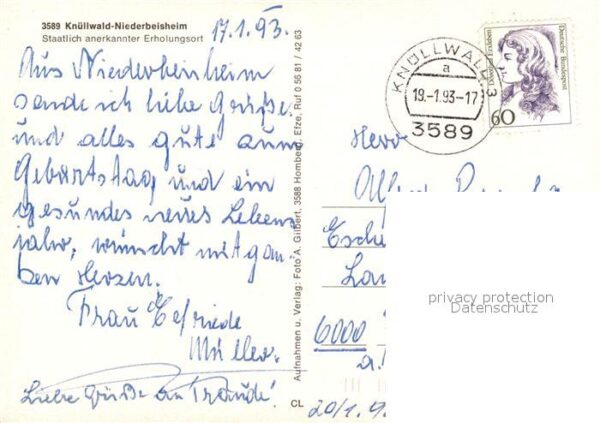 3589 Knüllwald-Niederbeisheim
Staatlich anerkannter Erholungsort
17.1.93.
Aus Niederheinheim
sende ich liebe Grüße
und alles gute zum
Gebartstag, und ein
gesundes neues Lebens
jahr, wünscht mit gan
ben Herzen.
Frau
Müller.
Liebe Grüße an Traude!
Aufnahmen u. Verlag: Foto A. Gilbert, 3588 Homberg, Efze, Ruf 0 56 81 / 42 63
CL
KNÜLLWALD 3
a
19.-1.93-17
3589
Dorothea Erxleben
Deutsche Bundespost
60
Herr
6000
20/1.9
privacy protection
Datenschutz